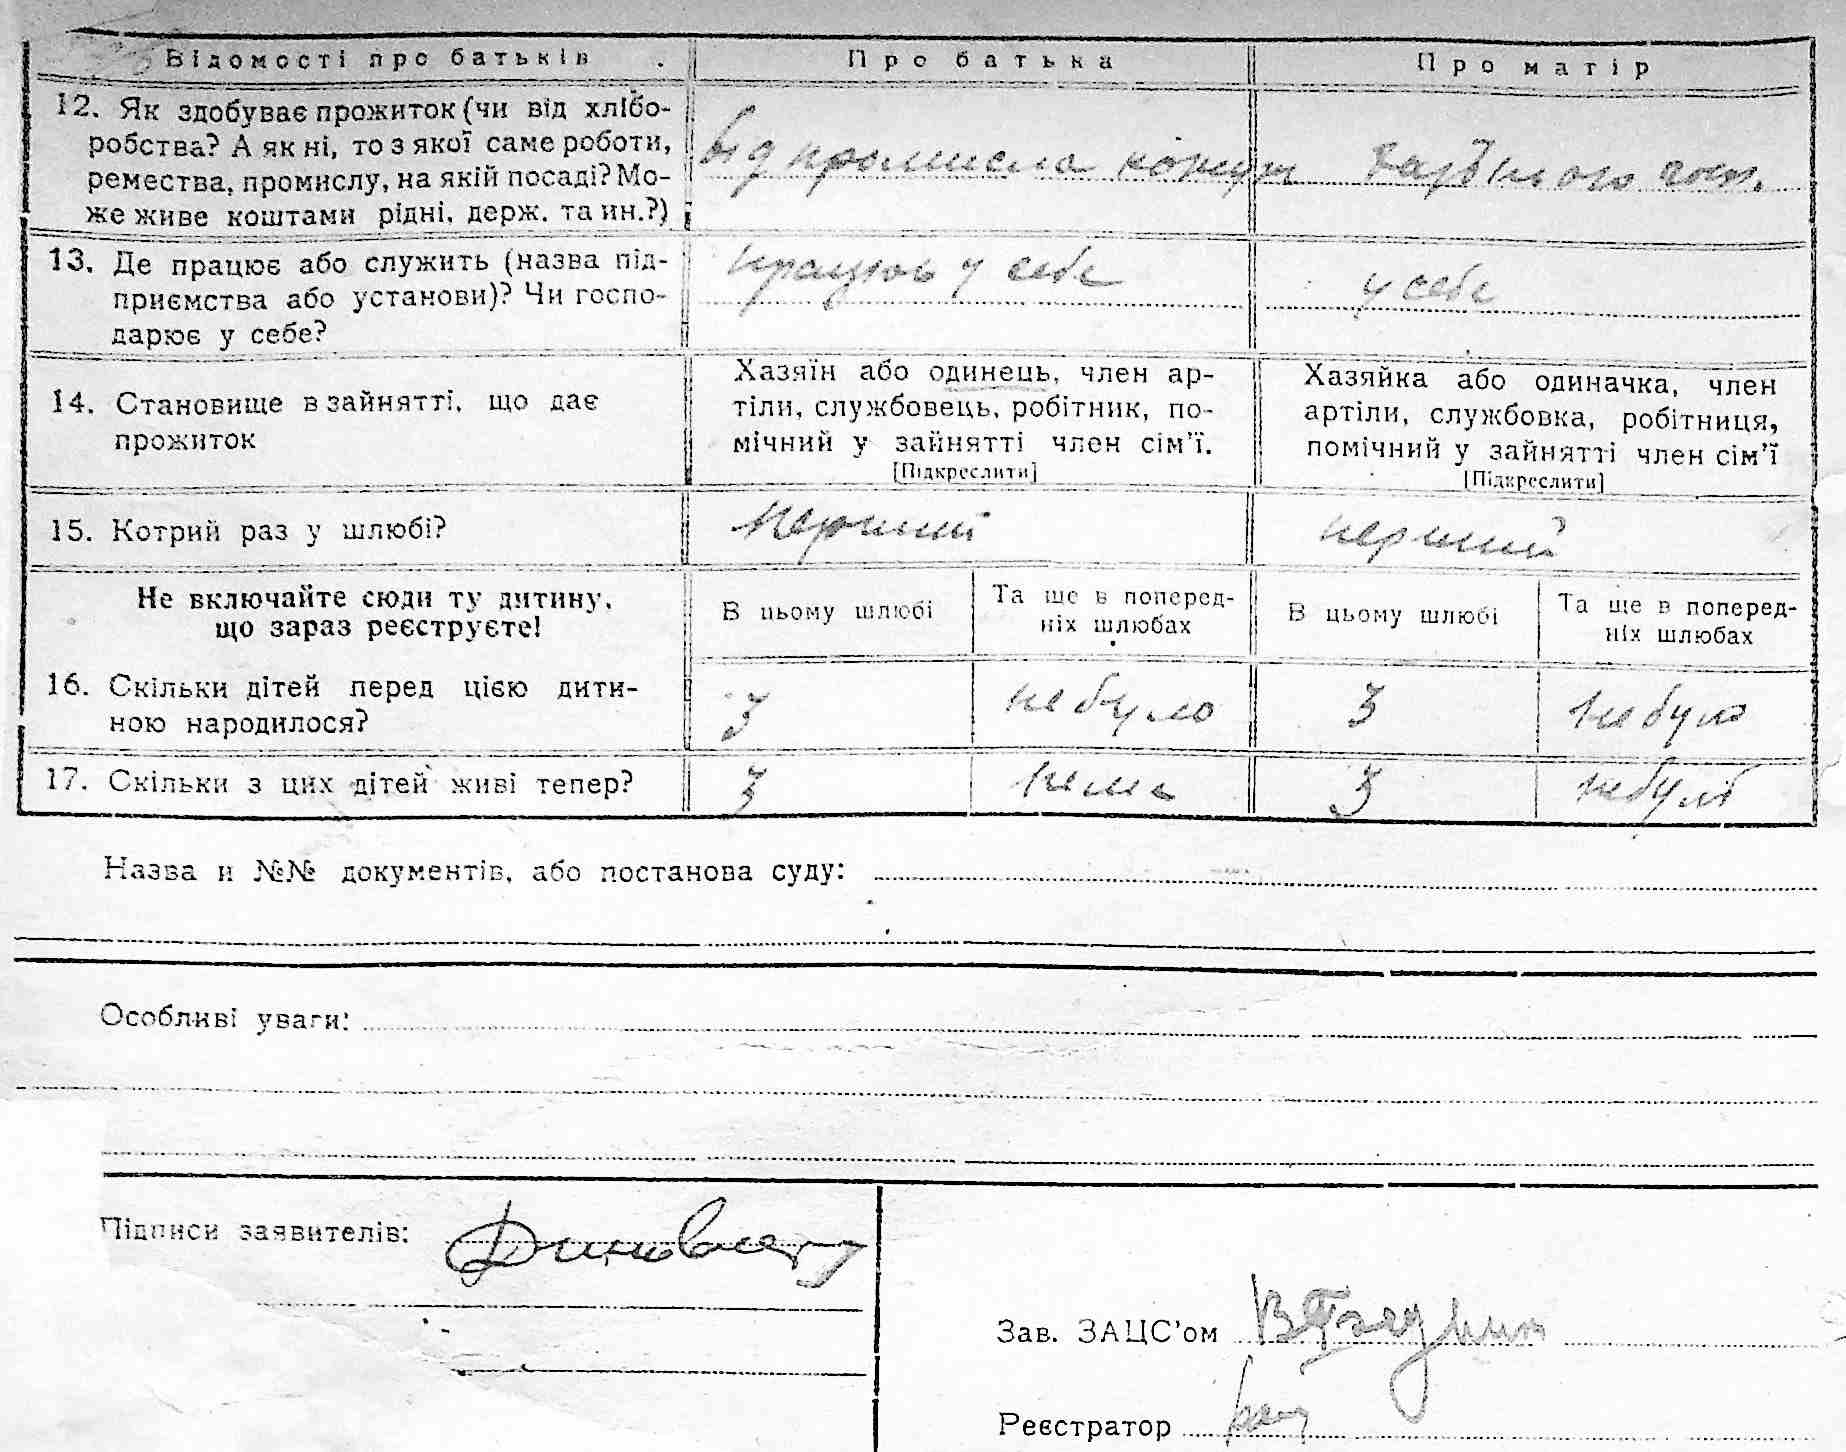 Відомості про батьків Про батька Про матір
12. Як здобуває прожиток (чи від хлібо-
робства? А як ні, то з якої саме роботи,
ремества, промислу, на якій посаді? Мо-
же живе коштами рідні, держ. та ин.?)
від промисла
13. Де працює або служить (назва під-
приємства або установи)? Чи госпо-
дарює у себе?
працює у себе
у себе
14. Становище в зайнятті, що дає
прожиток
Хазяїн або одинець, член ар-
тіли, службовець, робітник, по-
мічний у зайнятті член сім’ї.
[Підкреслити]
Хазяйка або одиначка, член
артіли, службовка, робітниця,
помічний у зайнятті член сім’ї
[Підкреслити]
15. Котрий раз у шлюбі?
перший
перший
Не включайте сюди ту дитину,
що зараз реєструєте!
В цьому шлюбі
Та ще в поперед-
ніх шлюбах
В цьому шлюбі
Та ще в поперед-
ніх шлюбах
16. Скільки дітей перед цією дити-
ною народилося?
3 небуло 3 небуло
17. Скільки з цих дітей живі тепер?
3 нема 3 небуло
Назва и №№ документів, або постанова суду:
Особливі уваги:
Підписи заявителів:
Зав. ЗАЦС’ом
Реєстратор